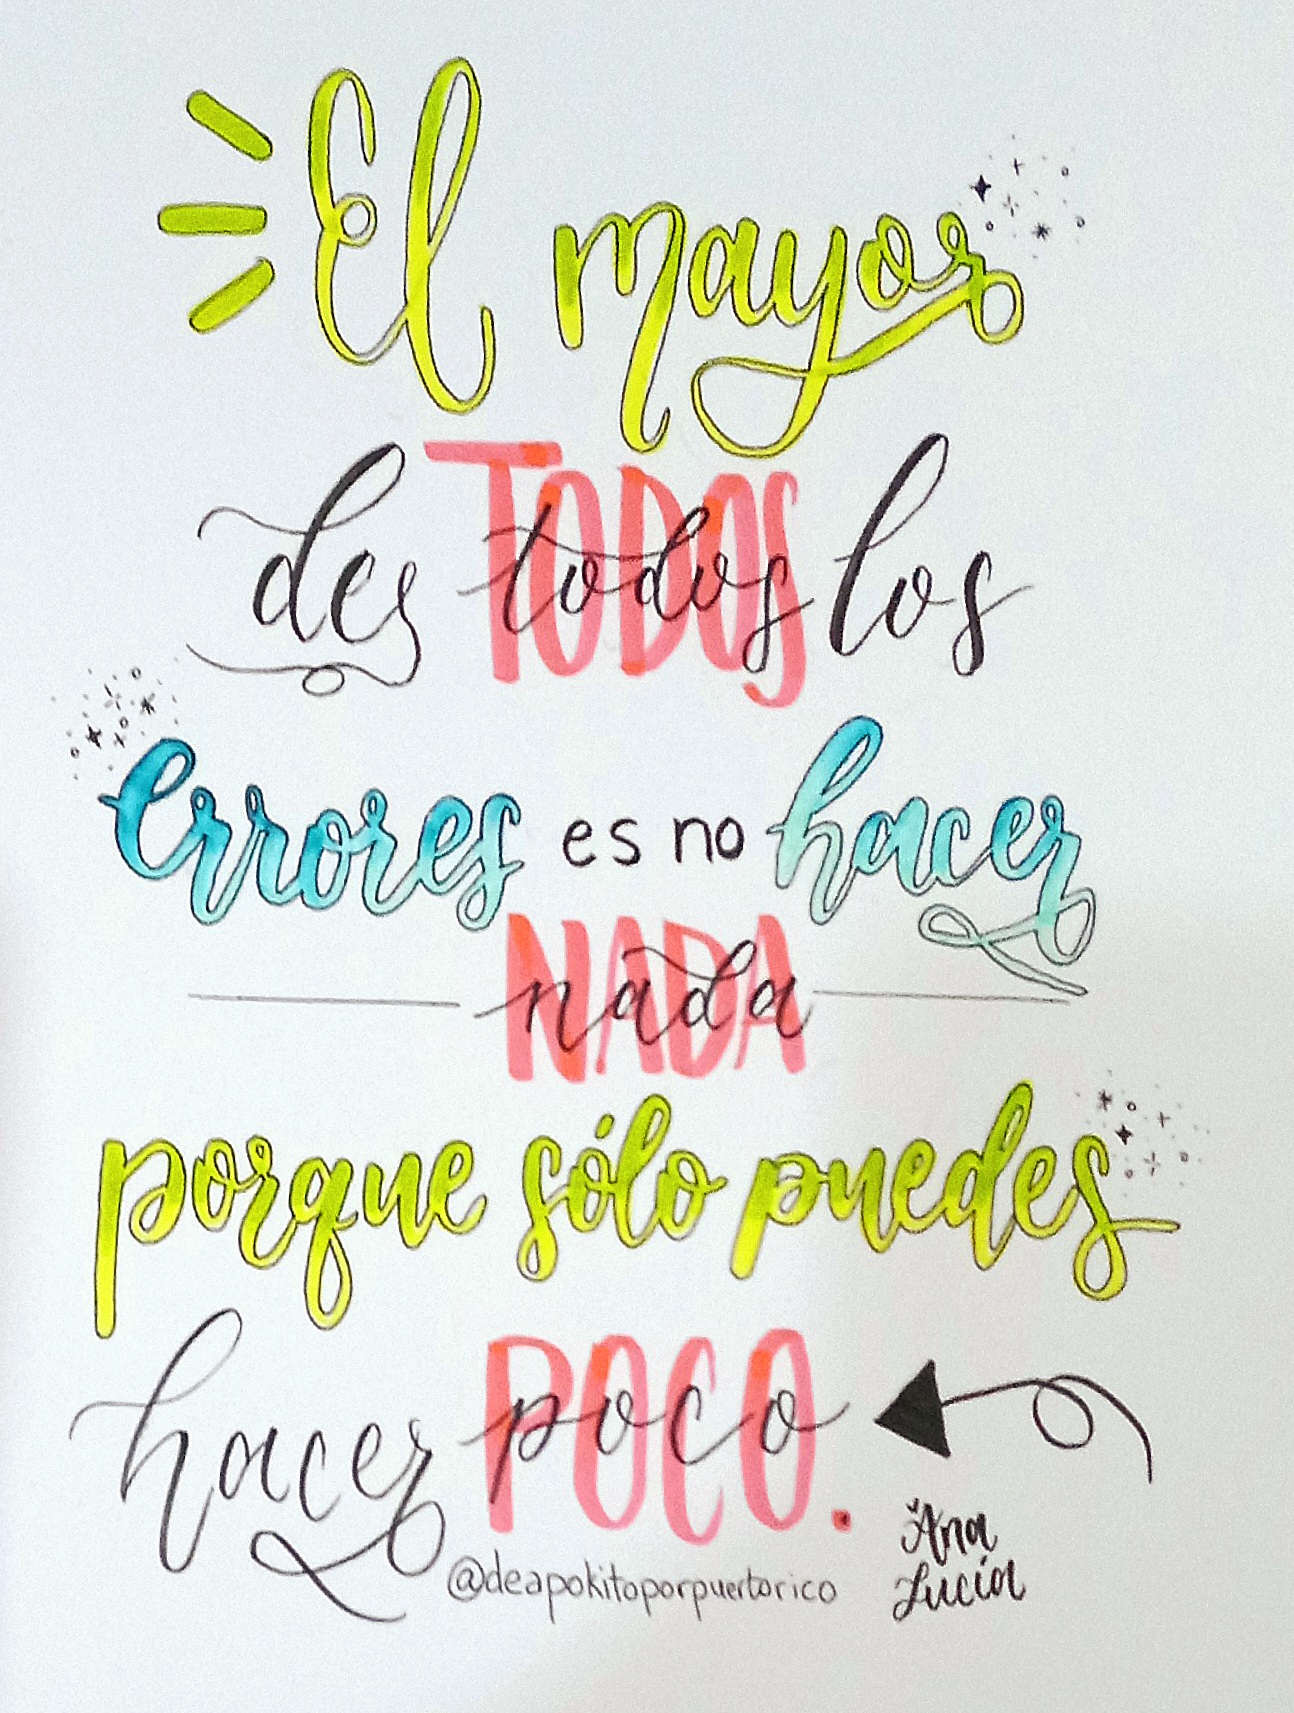 El mayor
des todos los
errores es no hacer
nada
porque sólo puedes
hacer poco.
@deapokitoporpuertorico
Ana
Lucía